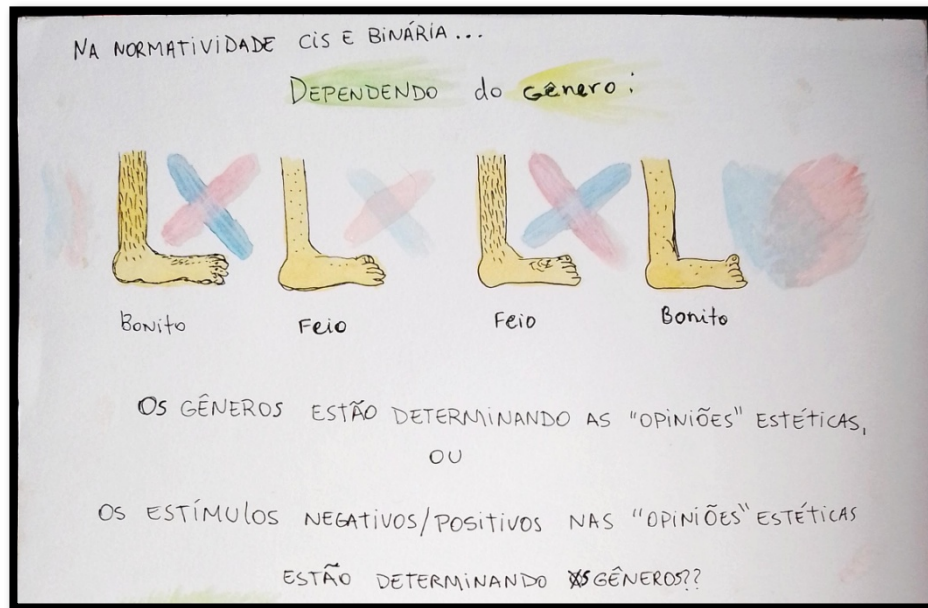 NA NORMATIVIDADE CIS E BINÁRIA...
DEPENDENDO do GÊNERO:
Bonito Feio Feio Bonito
OS GÊNEROS ESTÃO DETERMINANDO AS "OPINIÕES" ESTÉTICAS,
OU
OS ESTÍMULOS NEGATIVOS/POSITIVOS NAS "OPINIÕES" ESTÉTICAS
ESTÃO DETERMINANDO OS GÊNEROS??